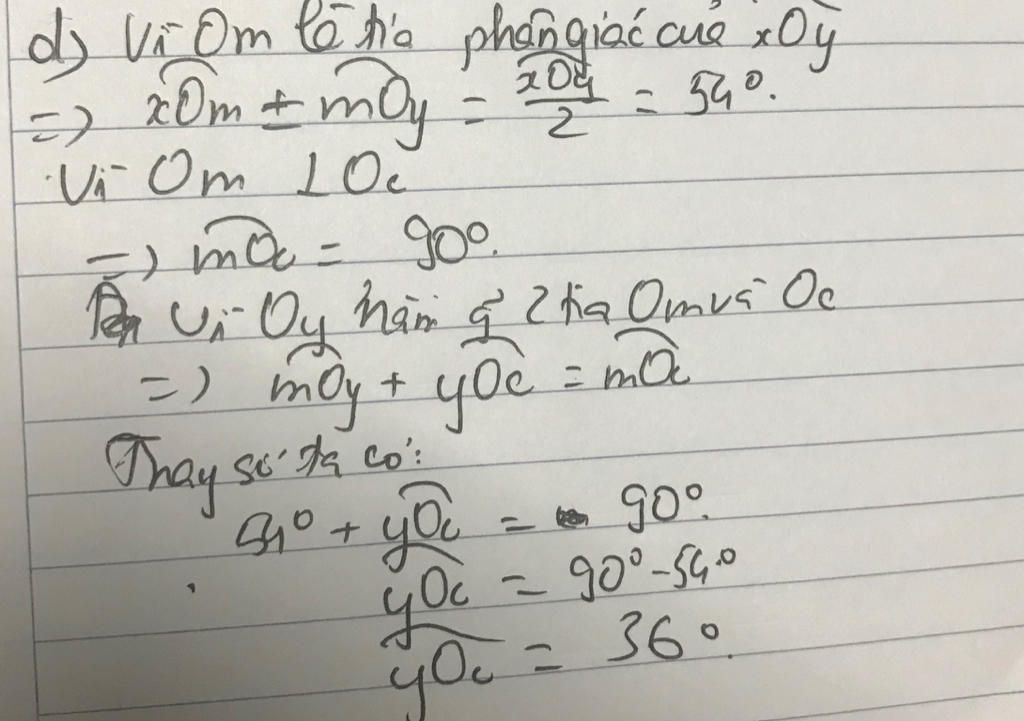 d) Vì Om là tia phân giác của xOy
=> xOm = mOy = xOy/2 = 54°.
Vì Om ⊥ Oc
=> mOc = 90°.
Vì Oy nằm g 2 tia Om và Oc
=> mOy + yOc = mOc
Thay số ta có:
54° + yOc = 90°.
yOc = 90° - 54°
yOc = 36°.